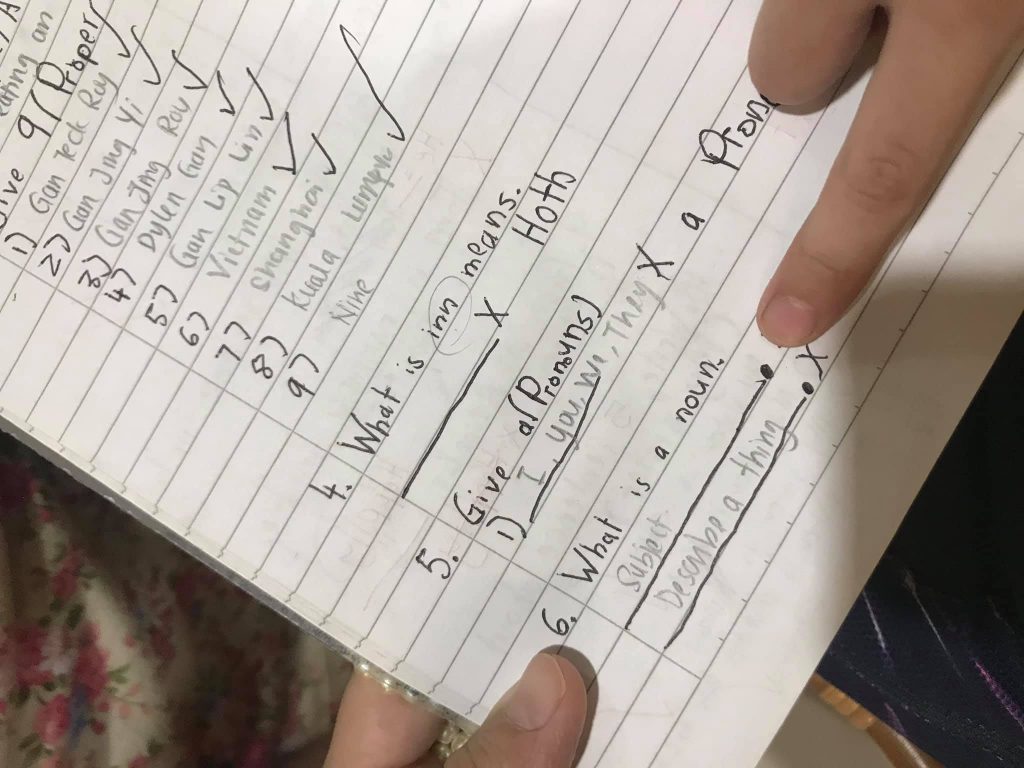 Give 9 (Proper
1) Gan Teck Roy
2) Gan Jing Yi
3) Gan Jing Rou
4) Dylen Gan
5) Gan Lip Lin
6) Vietnam
7) Shanghai
8) Kuala Lumpur
9) Nine
4. What is inn means.
X Hoth
5. Give a (Pronouns)
1) I, you, We, They X a Pron
6. What is a noun.
Subject
Describe a thing. X